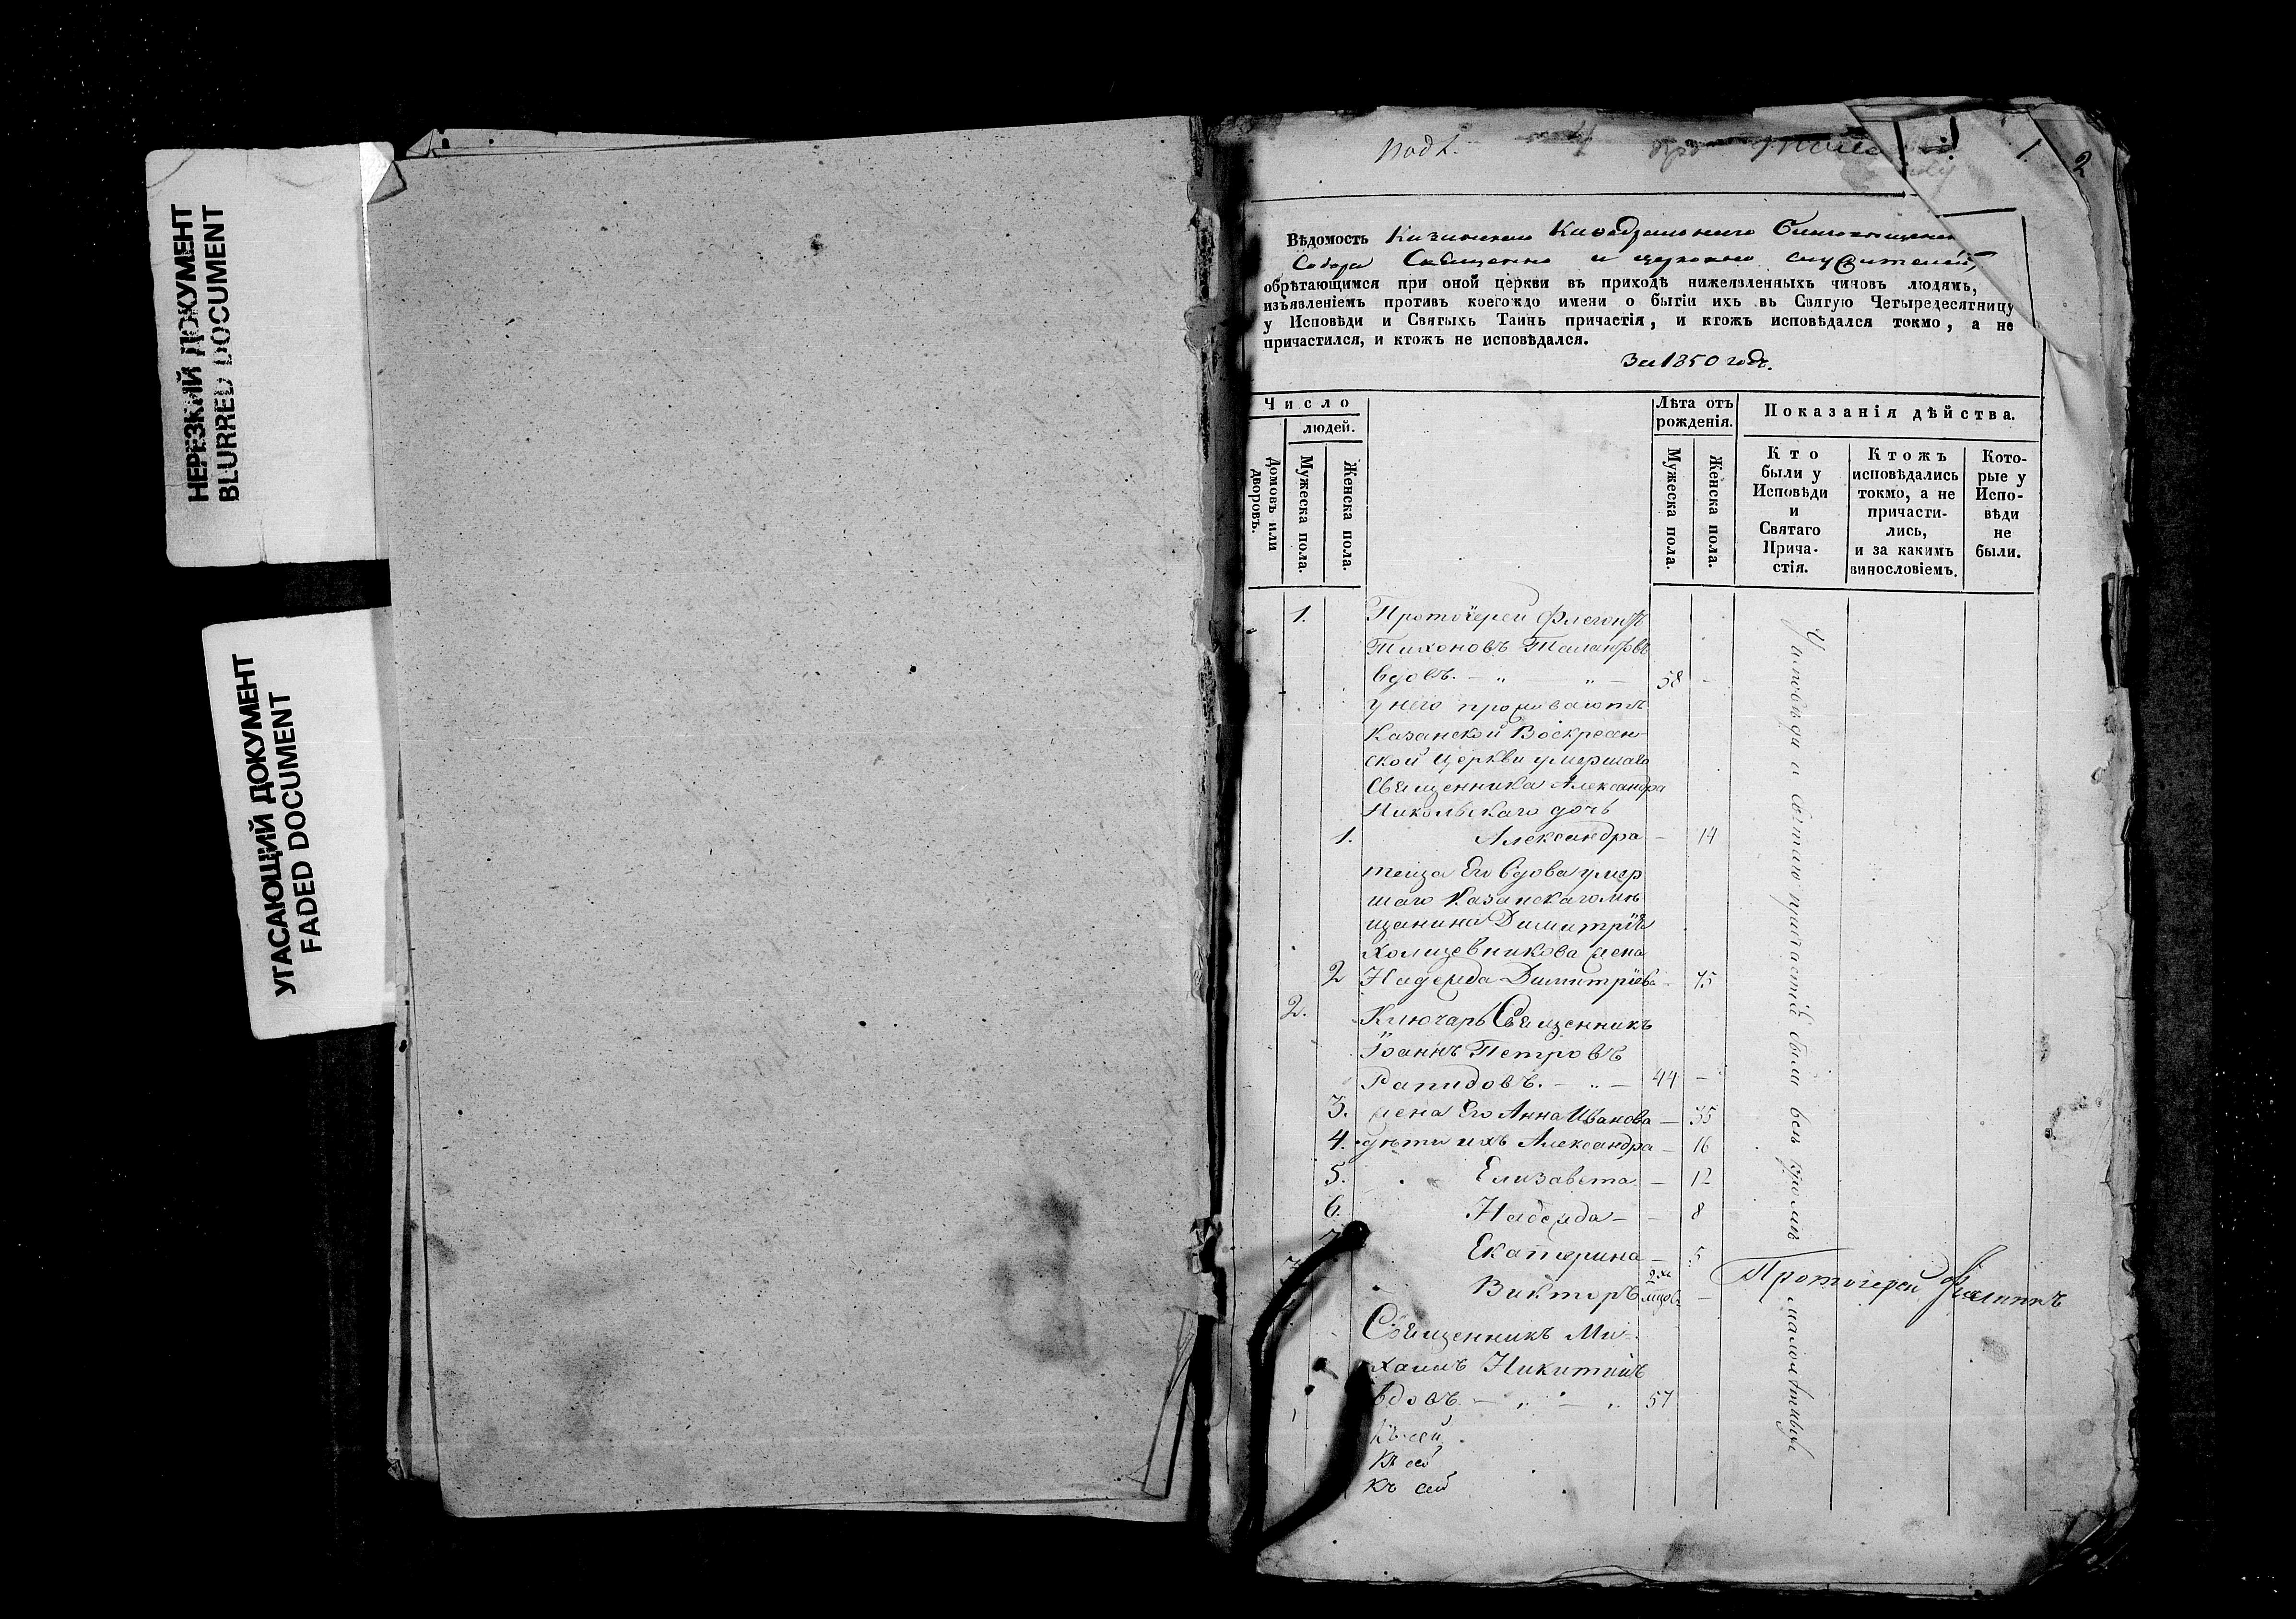 НЕРЕЗКИЙ ДОКУМЕНТ
BLURRED DOCUMENT
УГАСАЮЩИЙ ДОКУМЕНТ
FADED DOCUMENT
1 2
Вѣдомость Казанскаго Каѳедральнаго Благовѣщенск
Собора Священно и церковно служителей,
обрѣтающимся при оной церкви въ приходѣ нижеявленныхъ чиновъ людямъ,
изъявленіемъ противъ коегождо имени о бытіи ихъ въ Святую Четыредесятницу
у Исповѣди и Святыхъ Таинъ причастія, и ктожъ исповѣдался токмо, а не
причастился, и ктожъ не исповѣдался.
За 1850 годъ.
Число
людей.
Домовъ или дворовъ.
Мужеска пола.
Женска пола.
Лѣта отъ рожденія.
Мужеска пола.
Женска пола.
Показанія дѣйства.
Кто были у Исповѣди и Святаго Прича-стія.
Ктожъ исповѣдались токмо, а не причасти-лись, и за какимъ винословіемъ.
Кото-рые у Испо-вѣди не были.
1. Протоіерей Флегонтъ
Тихоновъ Талантовъ
вдовъ. — „ „ — 58 -
у него проживаютъ
Казанской Воскресен-
ской Церкви умершаго
Священника Александра
Никольскаго дочь
1. Александра — 14
теща Его вдова умер
шаго Казанскаго мѣ
щанина Димитрія
Холщевникова жена
2 Надежда Димитріева - 75
2. Ключарь Священникъ
Іоаннъ Петровъ
Рапидовъ. — „ — 44 —
3. жена Его Анна Иванова — 35
4. дѣти ихъ Александра — 16
5. Елизавета — 12
6. Надежда — - 8
7. Екатерина — 5
3. Викторъ 2хъ мцов. —
Священникъ Ми-
хаилъ Никитинъ
вдовъ — „ — „ 57
къ сей
къ сей
къ сей
У исповѣди и святаго причастія были всѣ кромѣ малолѣтныхъ
Протоіерей